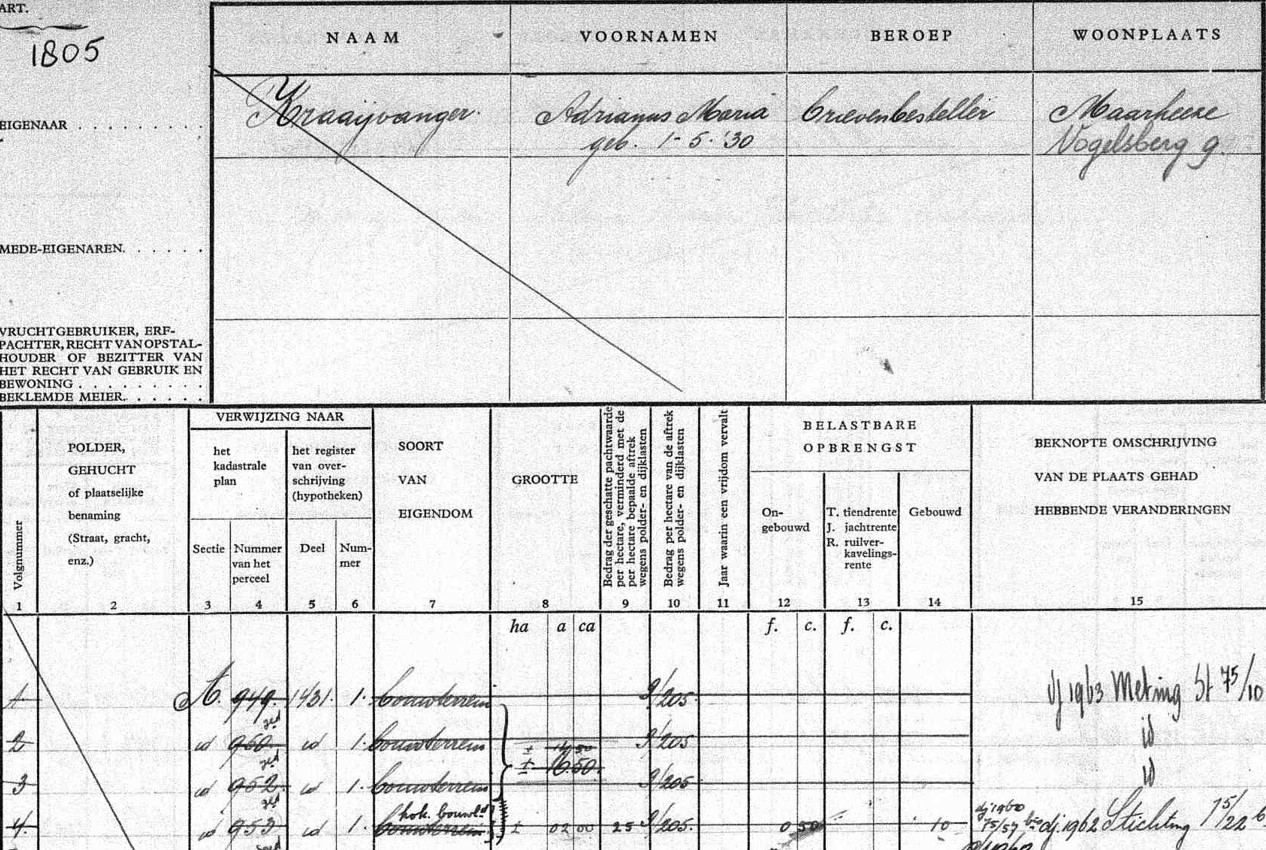 ART.
1805
NAAM VOORNAMEN BEROEP WOONPLAATS
EIGENAAR . . . . . . . . . .
Kraaijvanger. Adrianus Maria brievenbesteller Maarheeze
geb. 1-5-'30 Vogelsberg 9.
MEDE-EIGENAREN. . . . . .
VRUCHTGEBRUIKER, ERF-
PACHTER, RECHT VAN OPSTAL-
HOUDER OF BEZITTER VAN
HET RECHT VAN GEBRUIK EN
BEWONING . . . . . . . . .
BEKLEMDE MEIER. . . . . .
Volgnummer
1
POLDER,
GEHUCHT
of plaatselijke
benaming
(Straat, gracht,
enz.)
2
VERWIJZING NAAR
het
kadastrale
plan
Sectie
3
Nummer
van het
perceel
4
het register
van over-
schrijving
(hypotheken)
Deel
5
Num-
mer
6
SOORT
VAN
EIGENDOM
7
GROOTTE
8
Bedrag der geschatte pachtwaarde
per hectare, verminderd met de
per hectare bepaalde aftrek
wegens polder- en dijklasten
9
Bedrag per hectare van de aftrek
wegens polder- en dijklasten
10
Jaar waarin een vrijdom vervalt
11
BELASTBARE
OPBRENGST
On-
gebouwd
12
T. tiendrente
J. jachtrente
R. ruilver-
kavelings-
rente
13
Gebouwd
14
BEKNOPTE OMSCHRIJVING
VAN DE PLAATS GEHAD
HEBBENDE VERANDERINGEN
15
ha a ca f. c. f. c.
1 A. 949. 1431. 1. bouwterrein 9/205. dj 1963 Meting St 75/10
2 id 960. ged id 1. bouwterrein ± 9/205 id
± 16.50.
3 id 952. ged id 1. bouwterrein 9/205 id
4. id 953 ged id 1. hok. bouwl. bouwterrein ± 02 00 25 9/205. 0 50 10 dj 1960 75/57 dj. 1962 Stichting 75/22